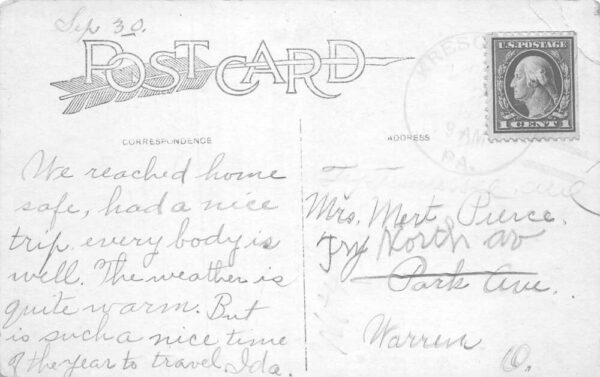 Sep 30.
POST CARD
U.S. POSTAGE
1 CENT 1
9 AM
PA.
CORRESPONDENCE
ADDRESS
We reached home
safe, had a nice
trip. every body is
well. The weather is
quite warm. But
is such a nice time
of the year to travel. Ida.
Mrs. Mert Pierce.
Try North av
Park Ave.
Warren
O.